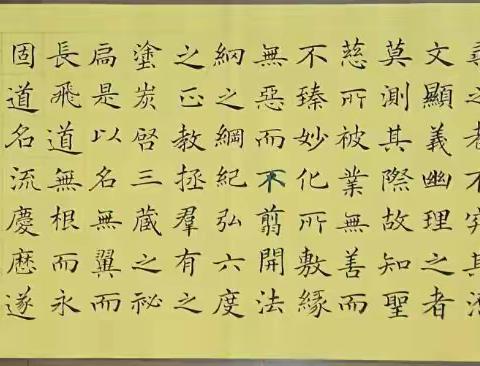 之者不究其
文顯義幽理之者
莫測其際故知聖
慈所被業無善而
不臻妙化所敷緣
無惡而不翦開法
網之綱紀弘六度
之正教拯羣有之
塗炭啓三蔵之祕
扃是以名無翼而
長飛道無根而永
固道名流慶歴遂